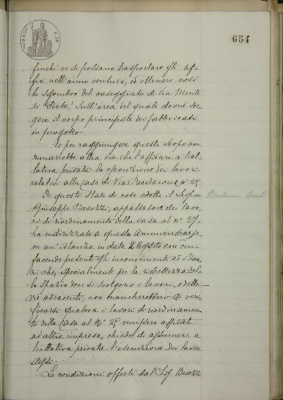 654
finchè vi si possano trasportare gli uf-
fici nell'anno venturo, ed ottenere così
lo sgombro del caseggiato di Via Monte
di Pietà, sull'area del quale dovrà sor-
gere il corpo principale dei fabbricati
in progetto.
Che per raggiungere questo scopo non
rimarrebbe altra via che l'affidare a trat-
tativa privata la esecuzione dei lavori
relativi alla casa di Via N° 27.
Di questo stato di cose edotto il Signor
Giuseppe appaltatore dei lavo-
ri di riordinamento della casa al N° 27,
ha indirizzato a questa Amministrazio-
ne un'istanza in data 2 Agosto con cui
facendo presenti gli inconvenienti ed i dan-
ni che, specialmente per la ristrettezza del-
lo spazio ove si svolgono i lavori, e delle
vie adiacenti, non mancherebbero di veri-
ficarsi qualora i lavori di riordinamen-
to della casa al N° venissero affidati
ad altra impresa, chiede di assumere a
trattativa privata l'esecuzione dei lavori
stessi;
Le condizioni offerte dal Sig.